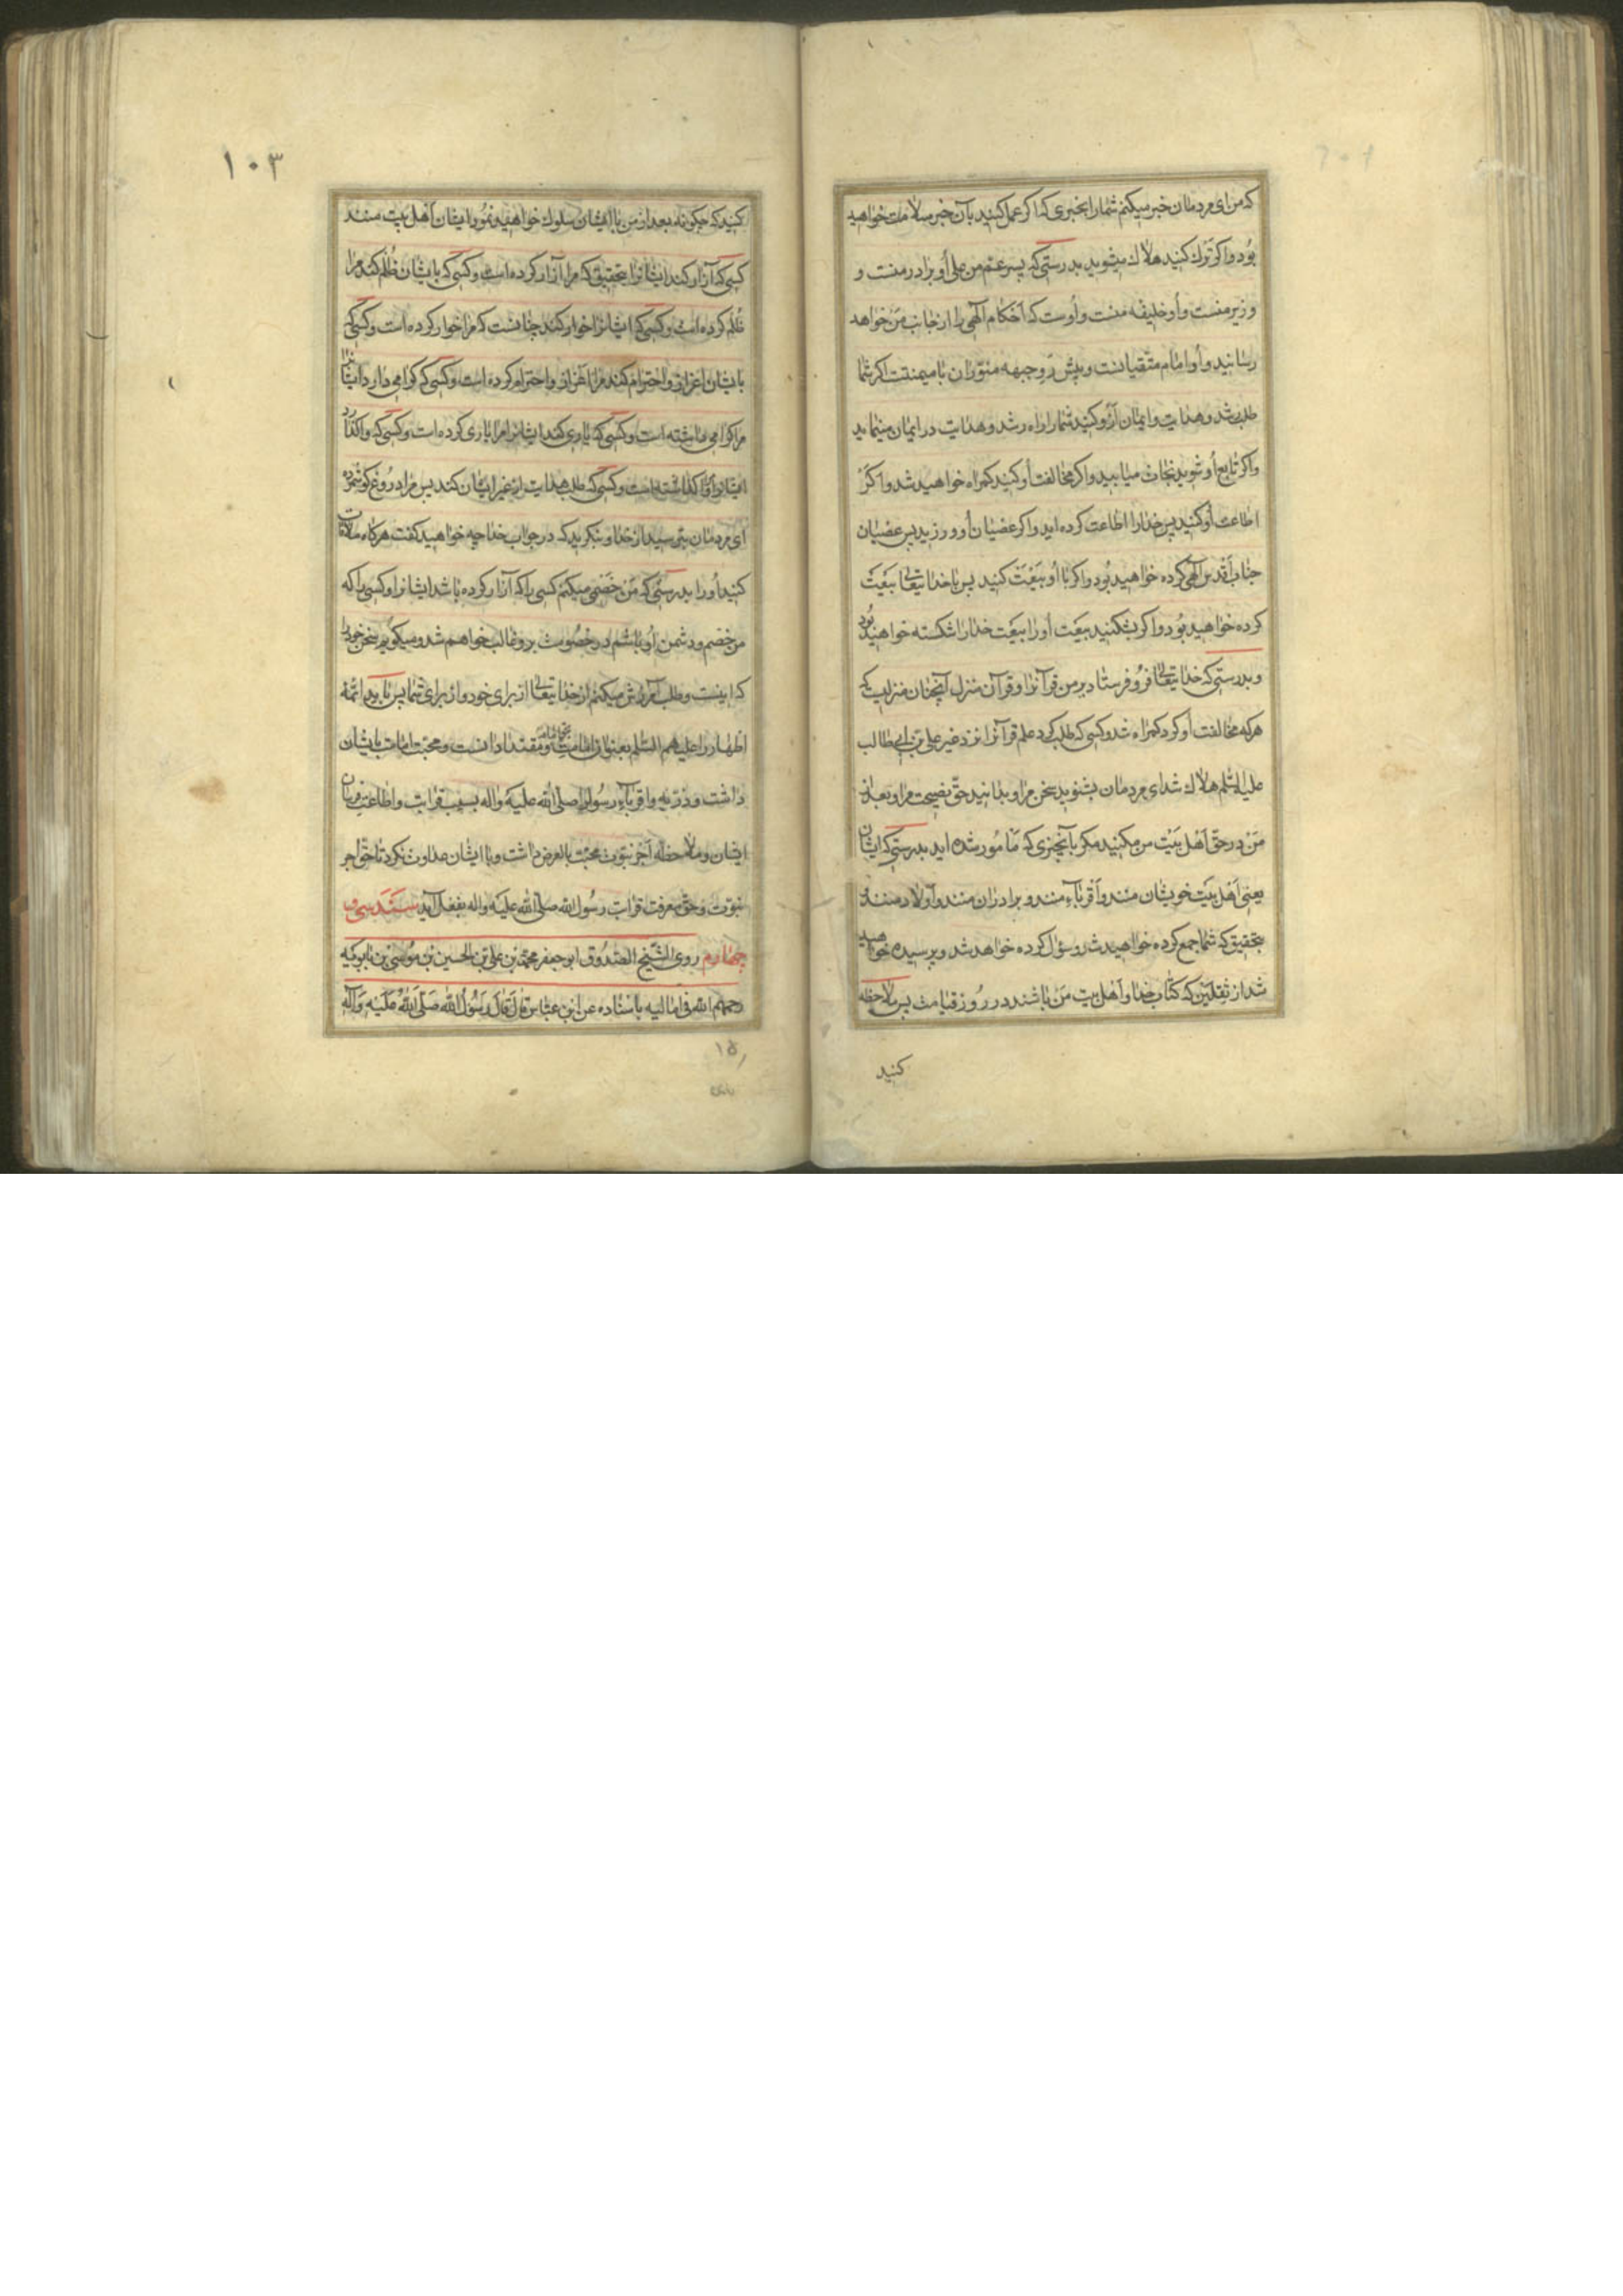 که من ای مردمان خبر میکنم شما را بخبری که اگر عمل کنید بآن خبر سلامت خواهید
بود و اگر ترک کنید هلاک میشوید بدرستی که پسر عم من علی او برادر منست و
وزیر منست و او خلیفه منست و اوست که احکام الهی را از جانب من خواهد
رسانید و او امام متقیانست و پیش رو جبهه منوران با میمنتست اگر شما
طلب رشد و هدایت و ایمان ازو کنید شما را راه رشد و هدایت در ایمان مینماید
و اگر تابع او شوید نجات میابید و اگر مخالفت او کنید گمراه خواهید شد و اگر
اطاعت او کنید پس خدا را اطاعت کرده اید و اگر عصیان او ورزید پس عصیان
جناب اقدس الهی کرده خواهید بود و اگر با او بیعت کنید پس با خدایتعالی بیعت
کرده خواهید بود و اگر بشکنید بیعت او را بیعت خدا را شکسته خواهید بود
و بدرستی که خدایتعالی فرو فرستاد بر من قرآنرا و قرآن منزل آنچنان منزلیست که
هر که مخالفت او کرد گمراه شد و کسی که طلب کرد علم قرآنرا نزد غیر علی بن ابی طالب
علیه السلم هلاک شد ای مردمان بشنوید سخن مرا و بدانید حق نصیحت مرا و بعد از
من در حق اهل بیت من مکنید مگر بآنچیزی که مامور شده اید بدرستی که ایشان
یعنی اهل بیت خویشان منند و اقرباء منند و برادران منند و اولاد منند و
بتحقیق که شما جمع کرده خواهید شد و سؤال کرده خواهد شد و پرسیده خواهید
شد از ثقلین که کتاب خدا و اهل بیت من باشند در روز قیامت پس ملاحظه
کنید
١٠٣
کنید که چگونه بعد از من با ایشان سلوک خواهید نمود ایشان اهل بیت منند
کسی که آزار کند ایشانرا بتحقیق که مرا آزار کرده است و کسی که بایشان ظلم کند مرا
ظلم کرده است و کسی که ایشانرا خوار کند چنانست که مرا خوار کرده است و کسی که
بایشان اعزاز و احترام کند مرا اعزاز و احترام کرده است و کسی که گرامی دارد ایشانرا
مرا گرامی داشته است و کسی که یاری کند ایشانرا مرا یاری کرده است و کسی که واگذارد
ایشانرا مرا واگذاشته است و کسی که طلب هدایت از غیر ایشان کند پس مرا دروغ گو شمرده
ای مردمان بترسید از خدا و بنگرید که در جواب خدا چه خواهید گفت هرگاه ملاقات
کنید او را بدرستی که من خصمی میکنم کسی را که آزار کرده باشد ایشانرا و کسی را که
من خصم و دشمن او باشم در خصومت برو غالب خواهم شد و میگویم سخن خود را
که اینست و طلب آمرزش میکنم از خدایتعالی از برای خود و از برای شما پس باید ائمه
اطهار را علیهم السلم بعنوان امامت و مقتدا دانست و محبت امامت بایشان
داشت و ذریه و اقرباء رسول را صلی الله علیه و اله بسبب قرابت و اطاعت فرمان
ایشان و ملاحظه اجر نبوت محبت بالعرض داشت و با ایشان عداوت نکرد تا حق اجر
نبوت و حق معرفت قرابت رسول الله صلی الله علیه و اله بفعل آید سند سی و
چهارم روی الشیخ الصدوق ابو جعفر محمد بن علی بن الحسین بن موسی بن بابویه
رحمهم الله فی امالیه باسناده عن ابن عباس قال قال رسول الله صلی الله علیه و آله